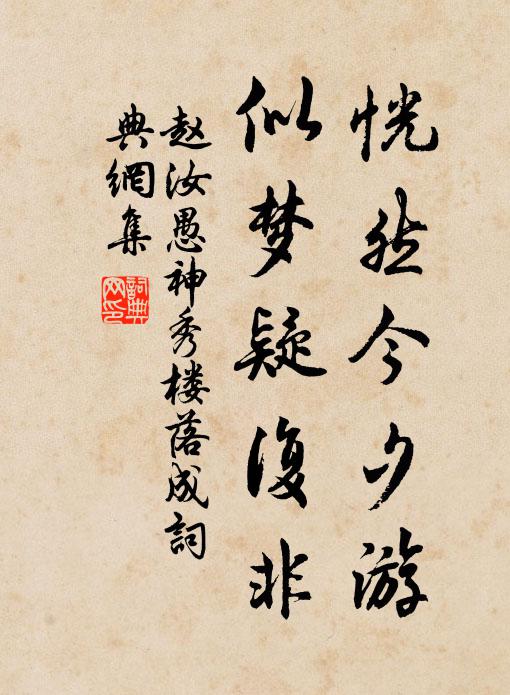 恍然今夕游
似梦疑復非
赵汝愚神秀楼落成詞
典網集
詞典
网印